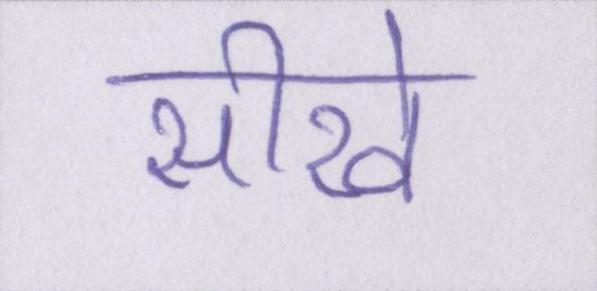 सीखे